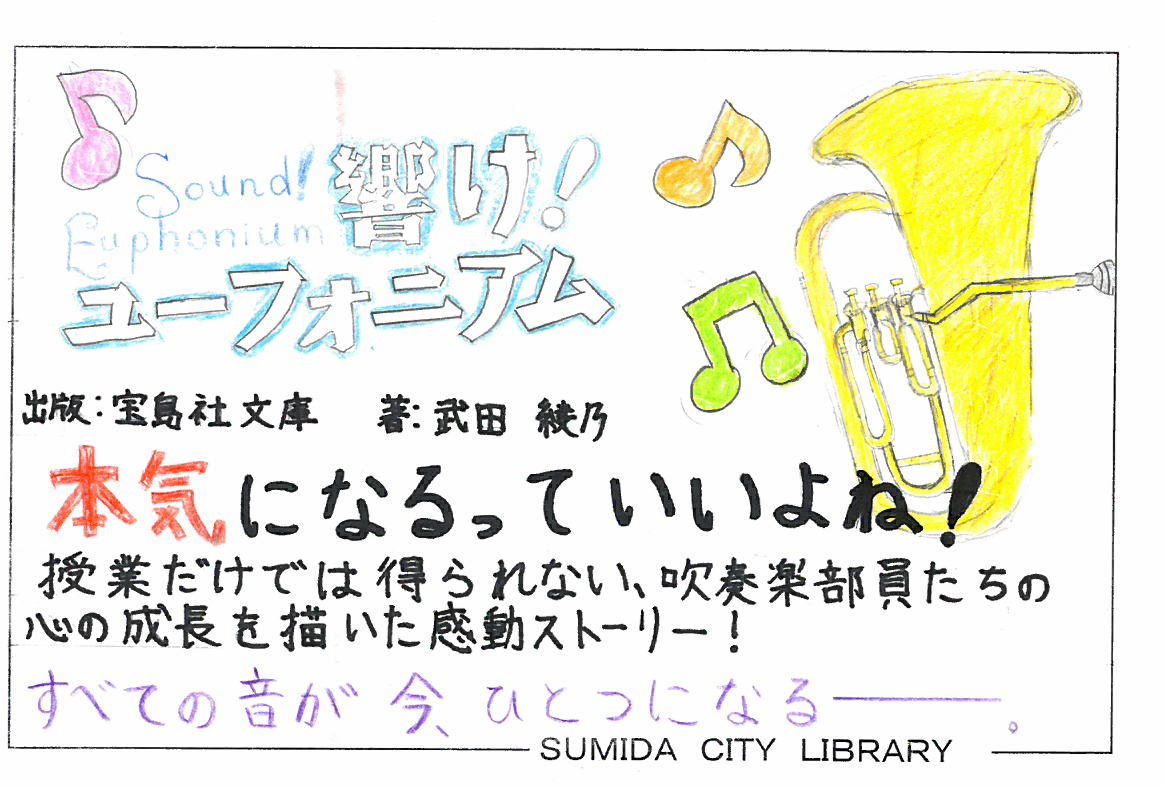 Sound!
Euphonium
響け!
ユーフォニアム
出版:宝島社文庫 著:武田 綾乃
本気になるっていいよね!
授業だけでは得られない、吹奏楽部員たちの
心の成長を描いた感動ストーリー!
すべての音が今、ひとつになる――。
SUMIDA CITY LIBRARY